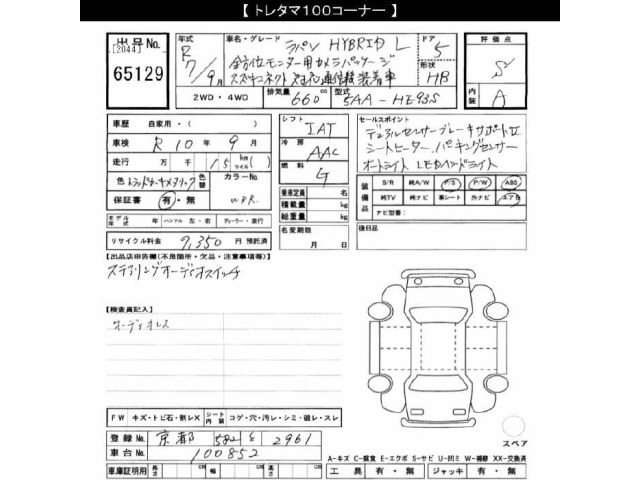 【 トレタマ100コーナー 】
出品No.
[2044]
65129
年式
R
7/9月
車名・グレード
ラパン HYBRID L
全方位モニター用カメラパッケージ
スズキコネクト対応通信機装着車
ドア
5
形状
HB
評価点
S
内装
A
2WD・4WD
排気量
660 cc
型式
5AA-HE93S
車歴 自家用・( )
車検 R 10 年 9 月
走行 万 千 15 km( マイル )
色
色替
カラーNo.
WBR
保証書 有・無
モデル年式 年 ハンドル 左・右 ディーラー・並行
リサイクル料金 9,350 円 預託済
シフト
IAT
冷房
AAC
燃料
G
乗車定員 名
積載量 kg
総重量 kg
名変期限
月 日
セールスポイント
デュアルセンサーブレーキサポートII
シートヒーター、パーキングセンサー
オートライト LEDヘッドライト
装備品
S/R 純A/W P/S P/W ABS
純TV 純ナビ 革シート 外ナビ エアB
ナビ型番:
後日品
【出品店申告欄(不良箇所・欠品・注意事項等)】
ステアリングオーディオスイッチ
【検査員記入】
オーディオレス
FW キズ・トビ石・削レX シート内装 コゲ・穴・汚レ・シミ・破レ・スレ
登録No. 京都 582 そ 2961
車台No. 100852
車庫証明用 長さ cm 幅 cm 高さ cm
スペア
A-キズ C-腐食 E-エクボ S-サビ U-凹ミ W-補修 XX-交換済
工具 有・無 ジャッキ 有・無